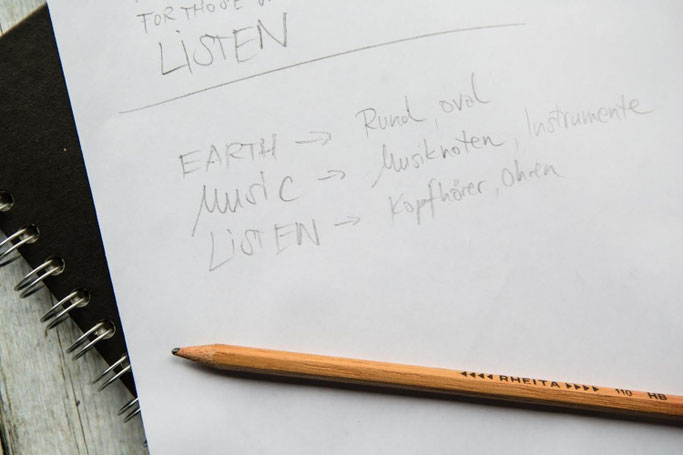 FOR THOSE
LISTEN
EARTH → Rund, oval
MUSIC → Musiknoten, Instrumente
LISTEN → Kopfhörer, Ohren
◄◄◄◄ RHEITA ►►►► 110 HB